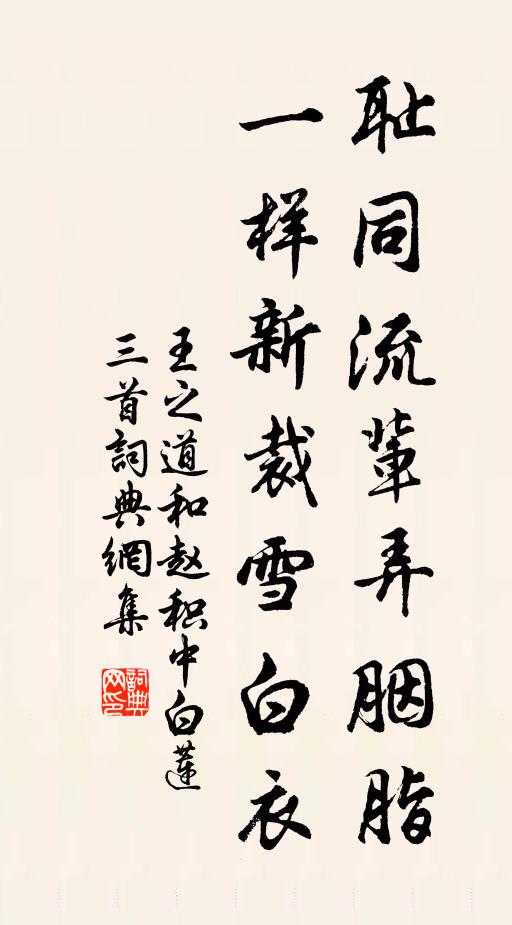 耻同流輩弄胭脂
一样新裁雪白衣
王之道和赵积中白蓮
三首詞典網集
詞典网印